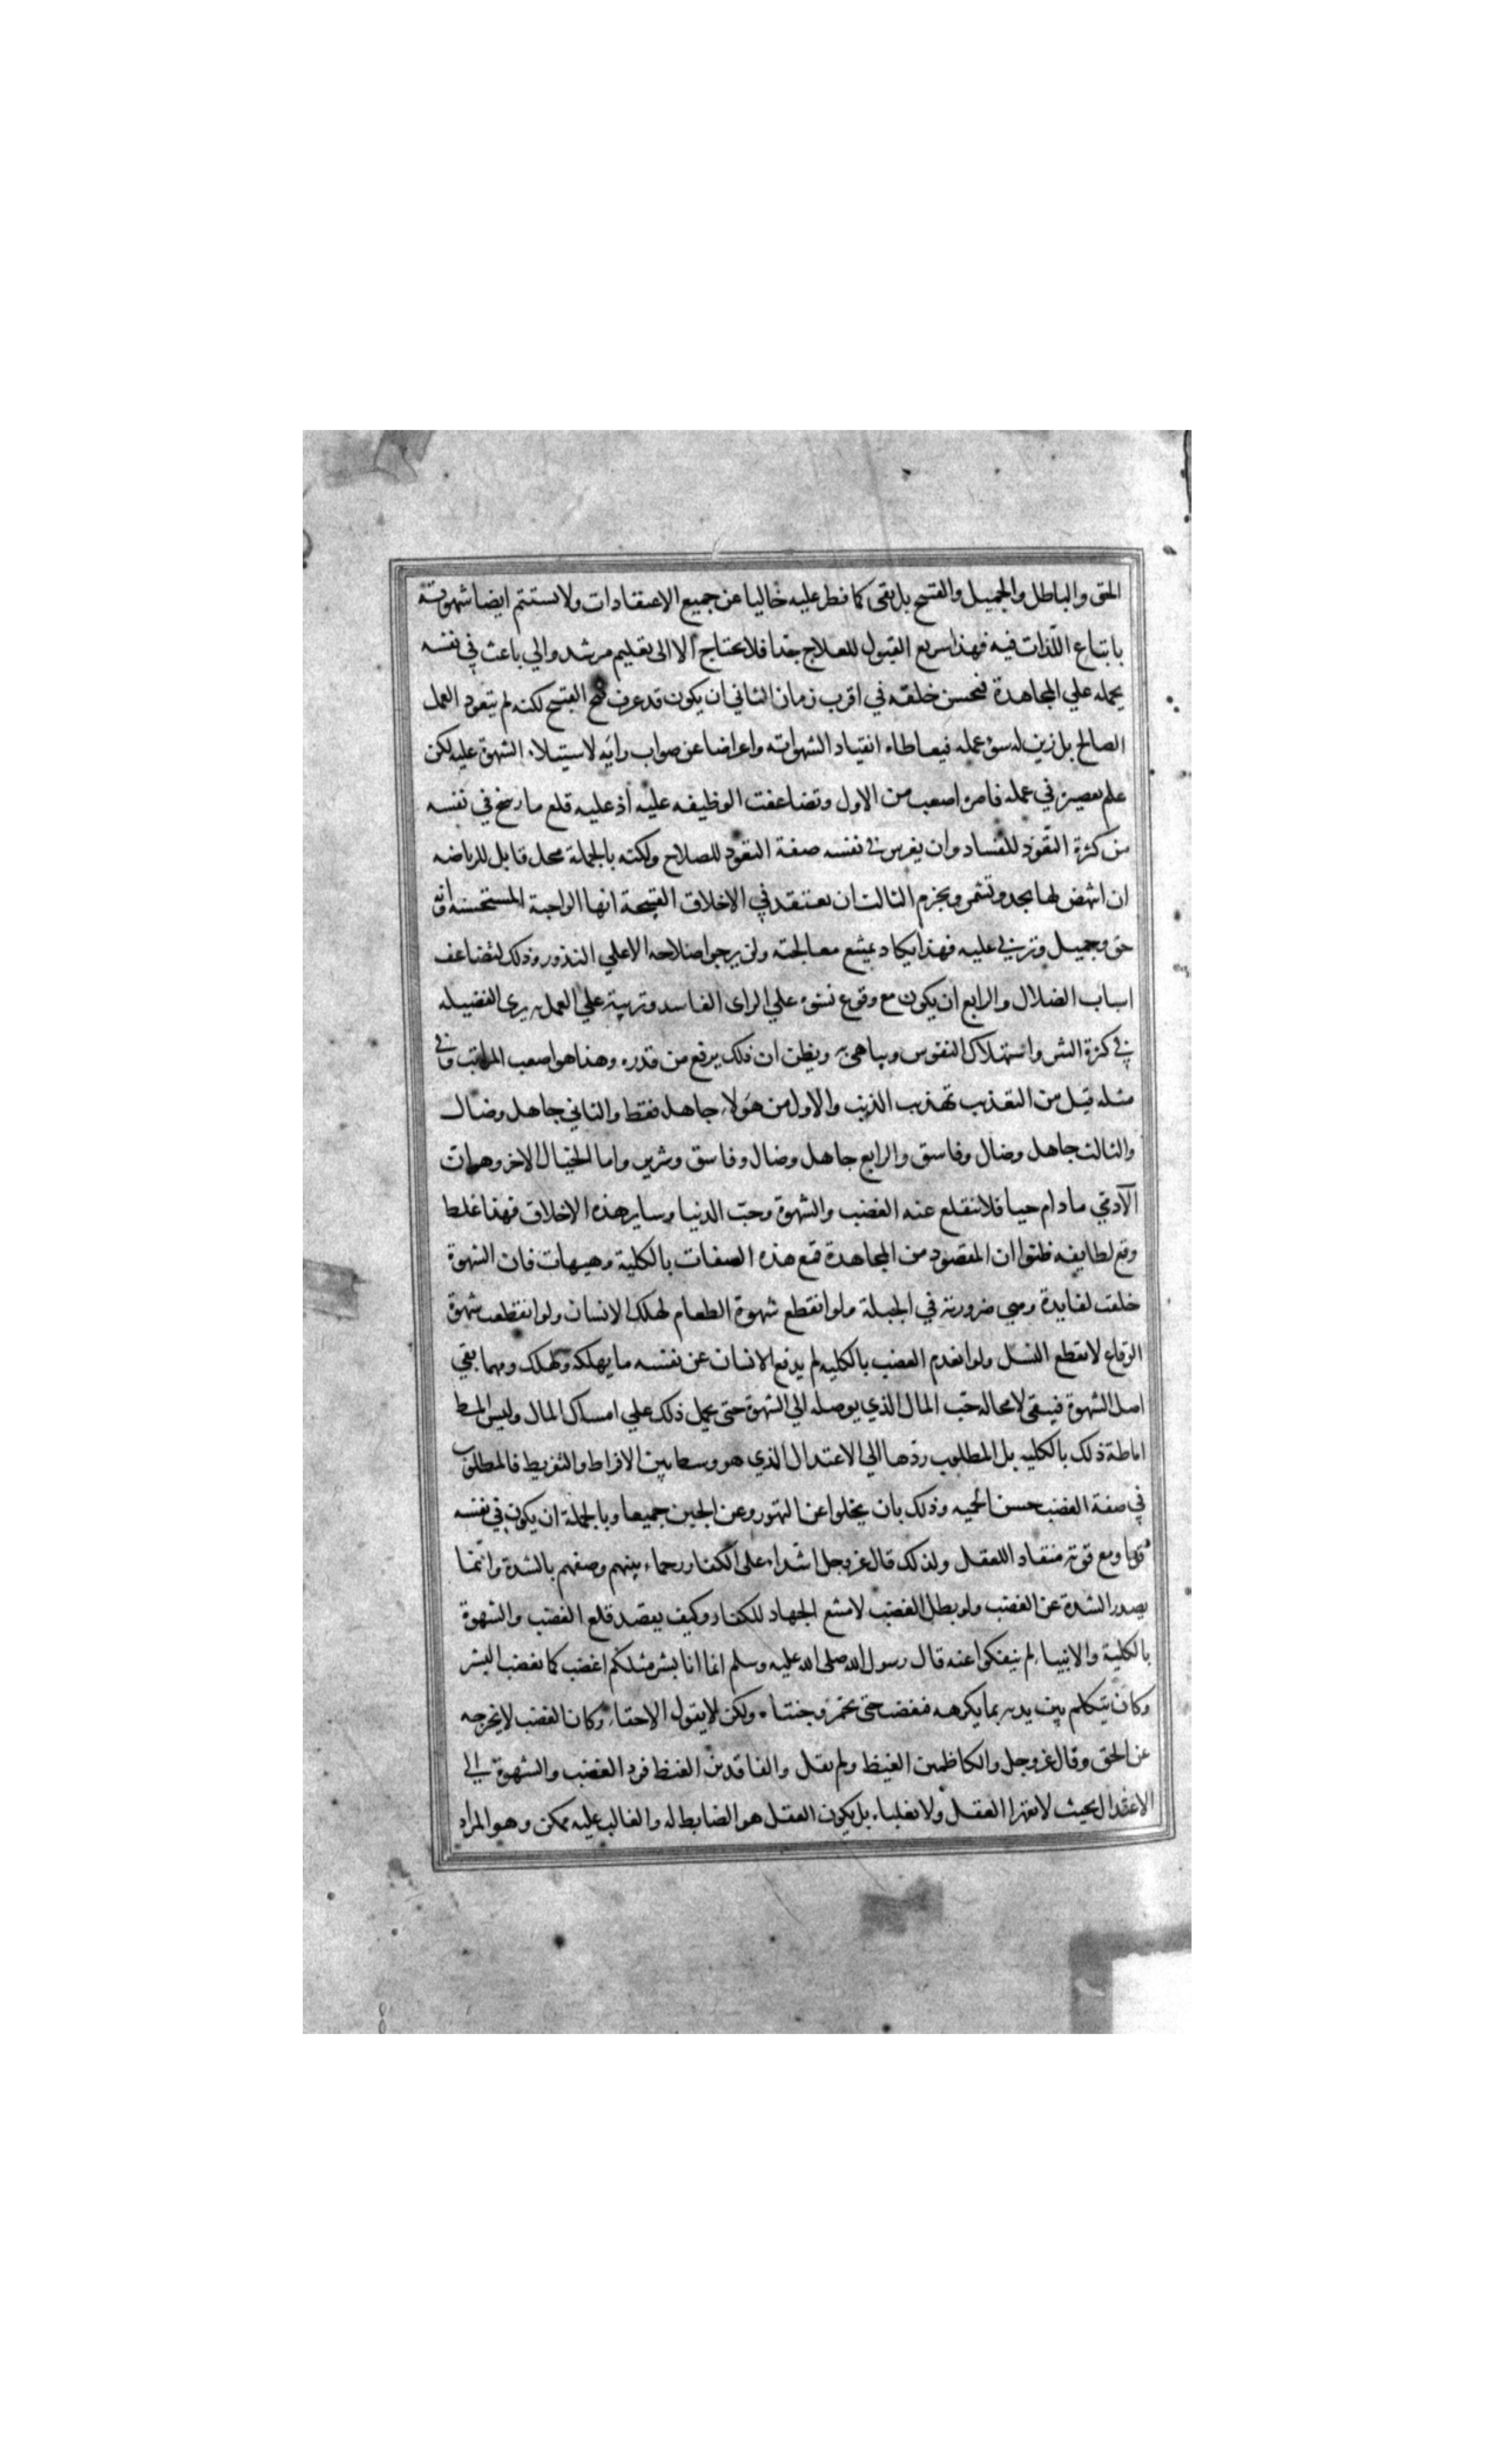 الحق والباطل والجميل والقبيح بل بقى كما فطر عليه خاليا عن جميع الاعتقادات ولا تستتم ايضا شهوته
باتباع اللذات فيه فهذا سريع القبول للعلاج جدا فلا يحتاج الا الى تعليم مرشد والي باعث في نفسه
يحمله علي المجاهدة فيحسن خلقه في اقرب زمان الثاني ان يكون قد عرف قبح القبيح لكنه لم يتعود العمل
الصالح بل زين له سوء عمله فيعاطاه انقياد الشهواته واعراضا عن صواب رايه لاستيلاء الشهوة عليه لكن
علم تقصيره في عمله فامره اصعب من الاول وتضاعفت الوظيفه عليه اذ عليه قلع ما رسخ في نفسه
من كثرة التعود للفساد وان يغرس في نفسه صفة التعود للصلاح ولكنه بالجملة محل قابل للرياضه
ان انتهض لها بجد وتشمر وبجزم الثالث ان يعتقد في الاخلاق القبيحة انها الواجبة المستحسنه وانه
حق وجميل وتربي عليه فهذا يكاد يمتنع معالجته ولن يرجوا صلاحه الا علي الندور وذلك لتضاعف
اسباب الضلال والرابع ان يكون مع وقوع نشوه علي الراى الفاسد وتربيته علي العمل به يرى الفضيله
في كثرة الشر واستهلاك النفوس ويباهي به ويظن ان ذلك يرفع من قدره وهذا هو اصعب المراتب وفي
مثله قيل من التعذيب تهذيب الذيب والاول من هولاء جاهل فقط والثاني جاهل وضال
والثالث جاهل وضال وفاسق والرابع جاهل وضال وفاسق وشرير واما الخيال الاخر وهو ان
الآدمي ما دام حيا فلا تنقلع عنه الغضب والشهوة وحب الدنيا وساير هذه الاخلاق فهذا غلط
وقع لطايفه ظنوا ان المقصود من المجاهدة قمع هذه الصفات بالكلية وهيهات فان الشهوة
خلقت لفايدة وهي ضرورية في الجبلة ولو انقطع شهوة الطعام لهلك الانسان ولو انقطعت شهوة
الوقاع لانقطع النسل ولو انعدم الغضب بالكليه لم يدفع الانسان عن نفسه ما يهلكه وهلك ومهما بقي
اصل الشهوة فيبقى لا محاله حب المال الذي يوصله الي الشهوة حتى يحمل ذلك علي امساك المال وليس المط
اماطة ذلك بالكليه بل المطلوب ردها الي الاعتدال الذي هو وسط بين الافراط والتفريط فالمطلوب
في صفة الغضب حسن الحميه وذلك بان يخلوا عن التهور وعن الجبن جميعا وبالجملة ان يكون في نفسه
قويا ومع قوته منقاد اللعقل ولذلك قال عز وجل اشداء على الكفار رحماء بينهم وصفهم بالشدة وانما
يصدر الشدة عن الغضب ولو بطل الغضب لامتنع الجهاد للكفار وكيف يقصد قلع الغضب والشهوة
بالكلية والانبياء لم ينفكوا عنه قال رسول الله صلى الله عليه وسلم انما انا بشر مثلكم اغضب كما يغضب البشر
وكان يتكلم بين يديه بما يكرهه فغضب حتى تحمر وجنتاه ولكن لا يقول الا حقا وكان الغضب لا يخرجه
عن الحق وقال عز وجل والكاظمين الغيظ ولم يقل والفاقدين الغيظ فرد الغضب والشهوة الي
الاعتدال بحيث لا تقهر العقل ولا تغلباه بل يكون العقل هو الضابط له والغالب عليه ممكن وهو المراد